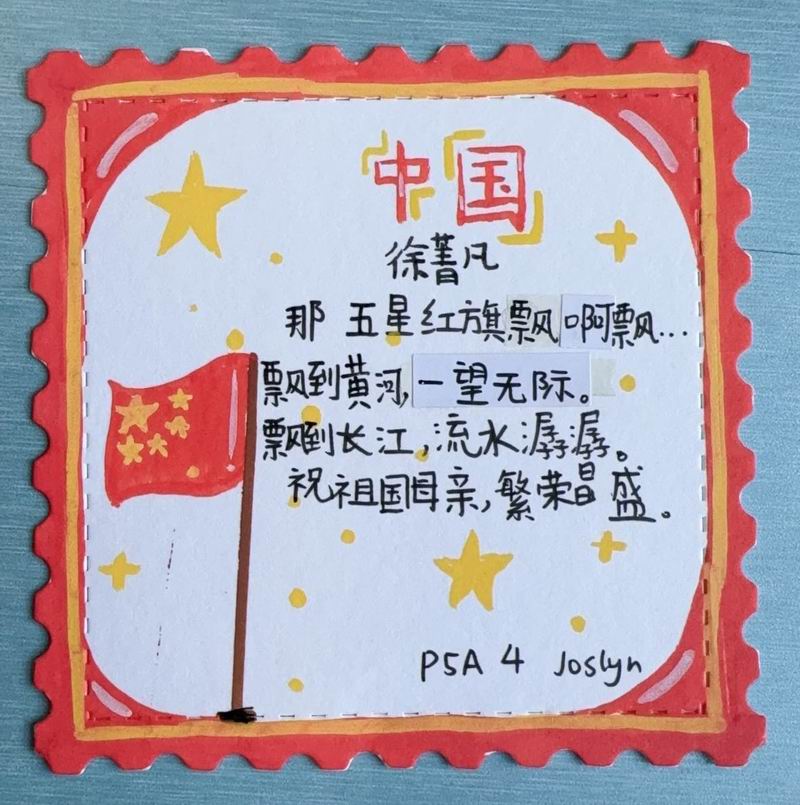 中国
徐菁凡
那 五星红旗飘啊飘...
飘到黄河,一望无际。
飘到长江,流水潺潺。
祝祖国母亲,繁荣昌盛。
P5A 4 Joslyn